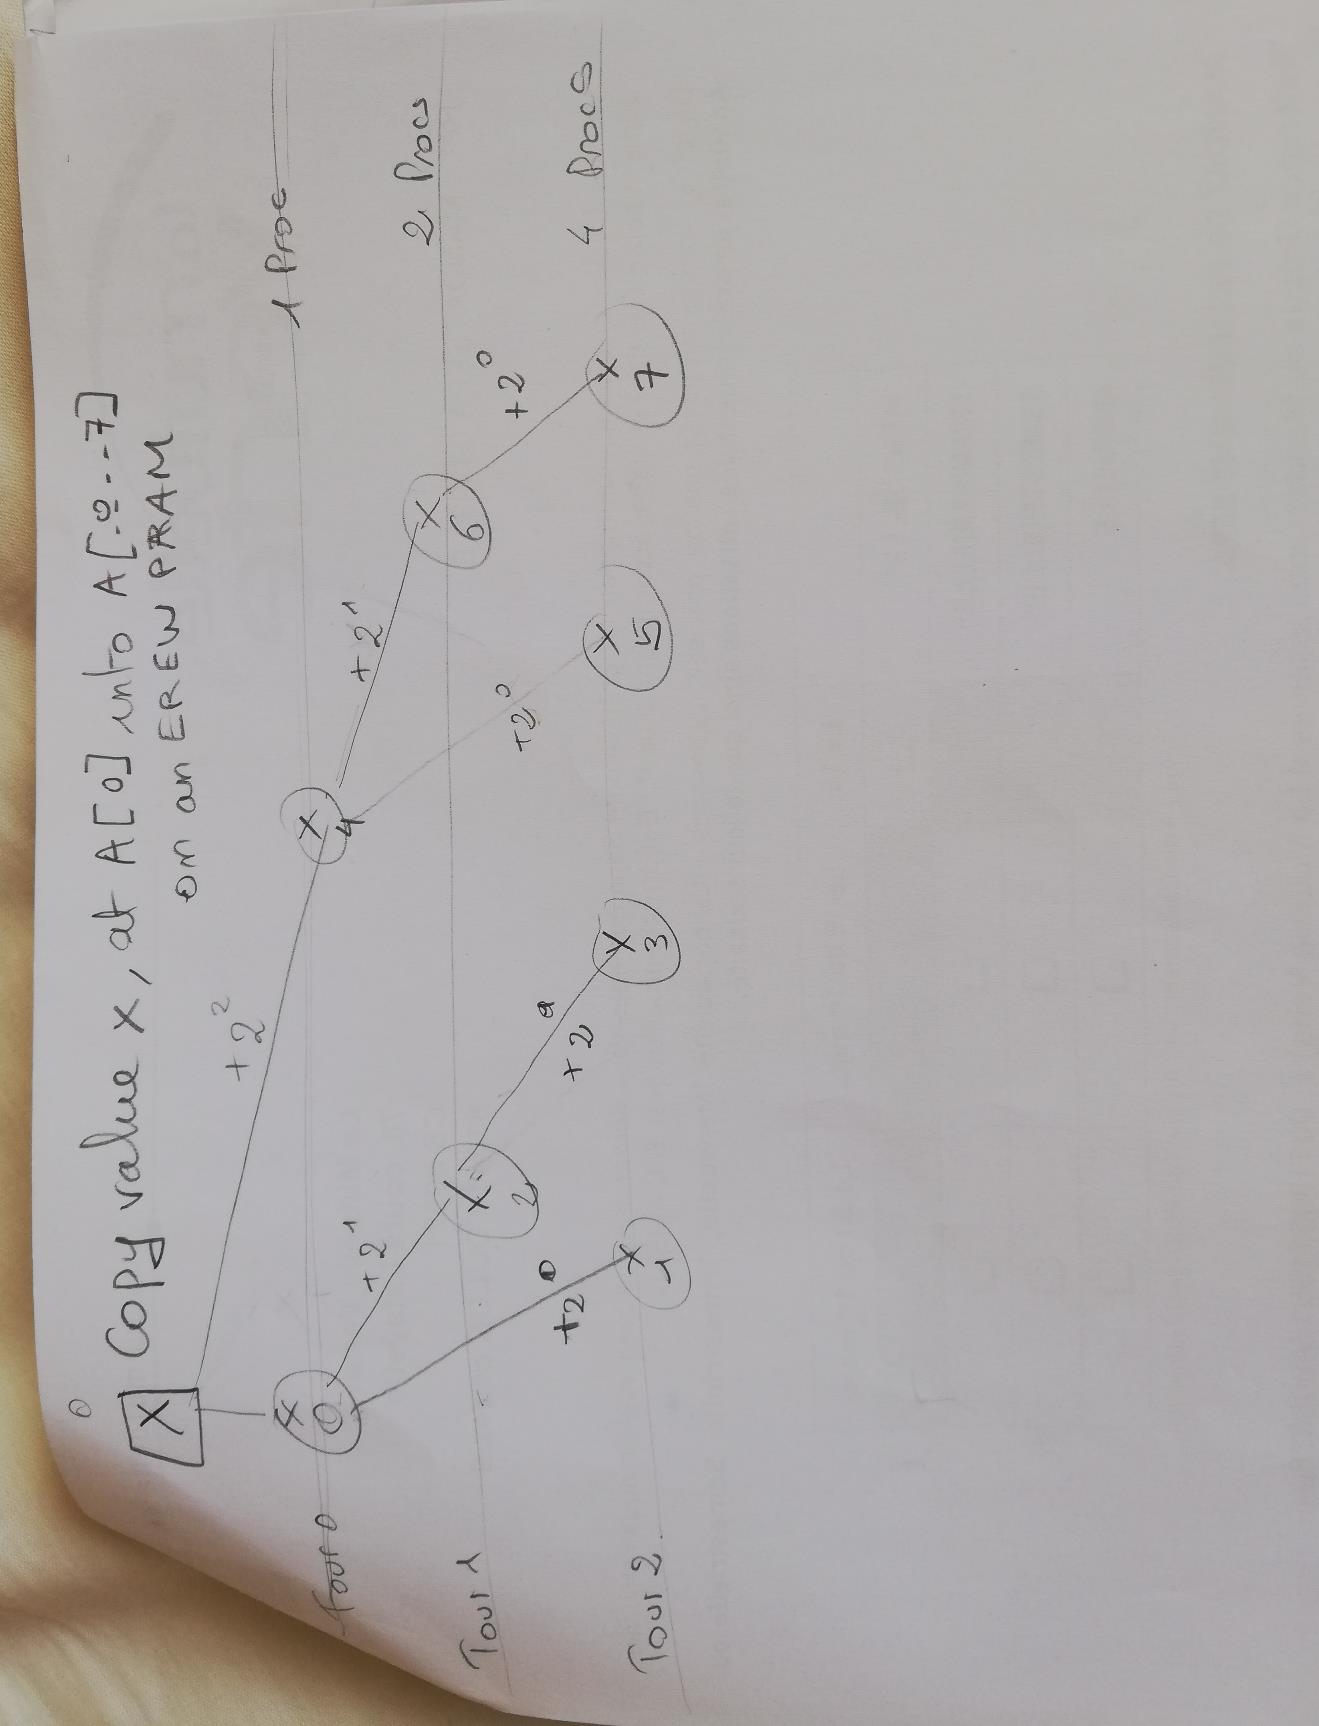 0
X Copy value x, at A[0] into A[.0..7]
on an EREW PRAM
+2²
Tour 0 X 0 X 4 1 Proc
+2¹ +2¹
Tour 1 X 2 X 6 2 Procs
+2⁰ +2⁰ +2⁰ +2⁰
Tour 2 X 1 X 3 X 5 X 7 4 Procs